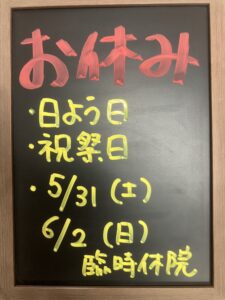 お休み
・日よう日
・祝祭日
・5/31(土)
6/2(日)
臨時休院